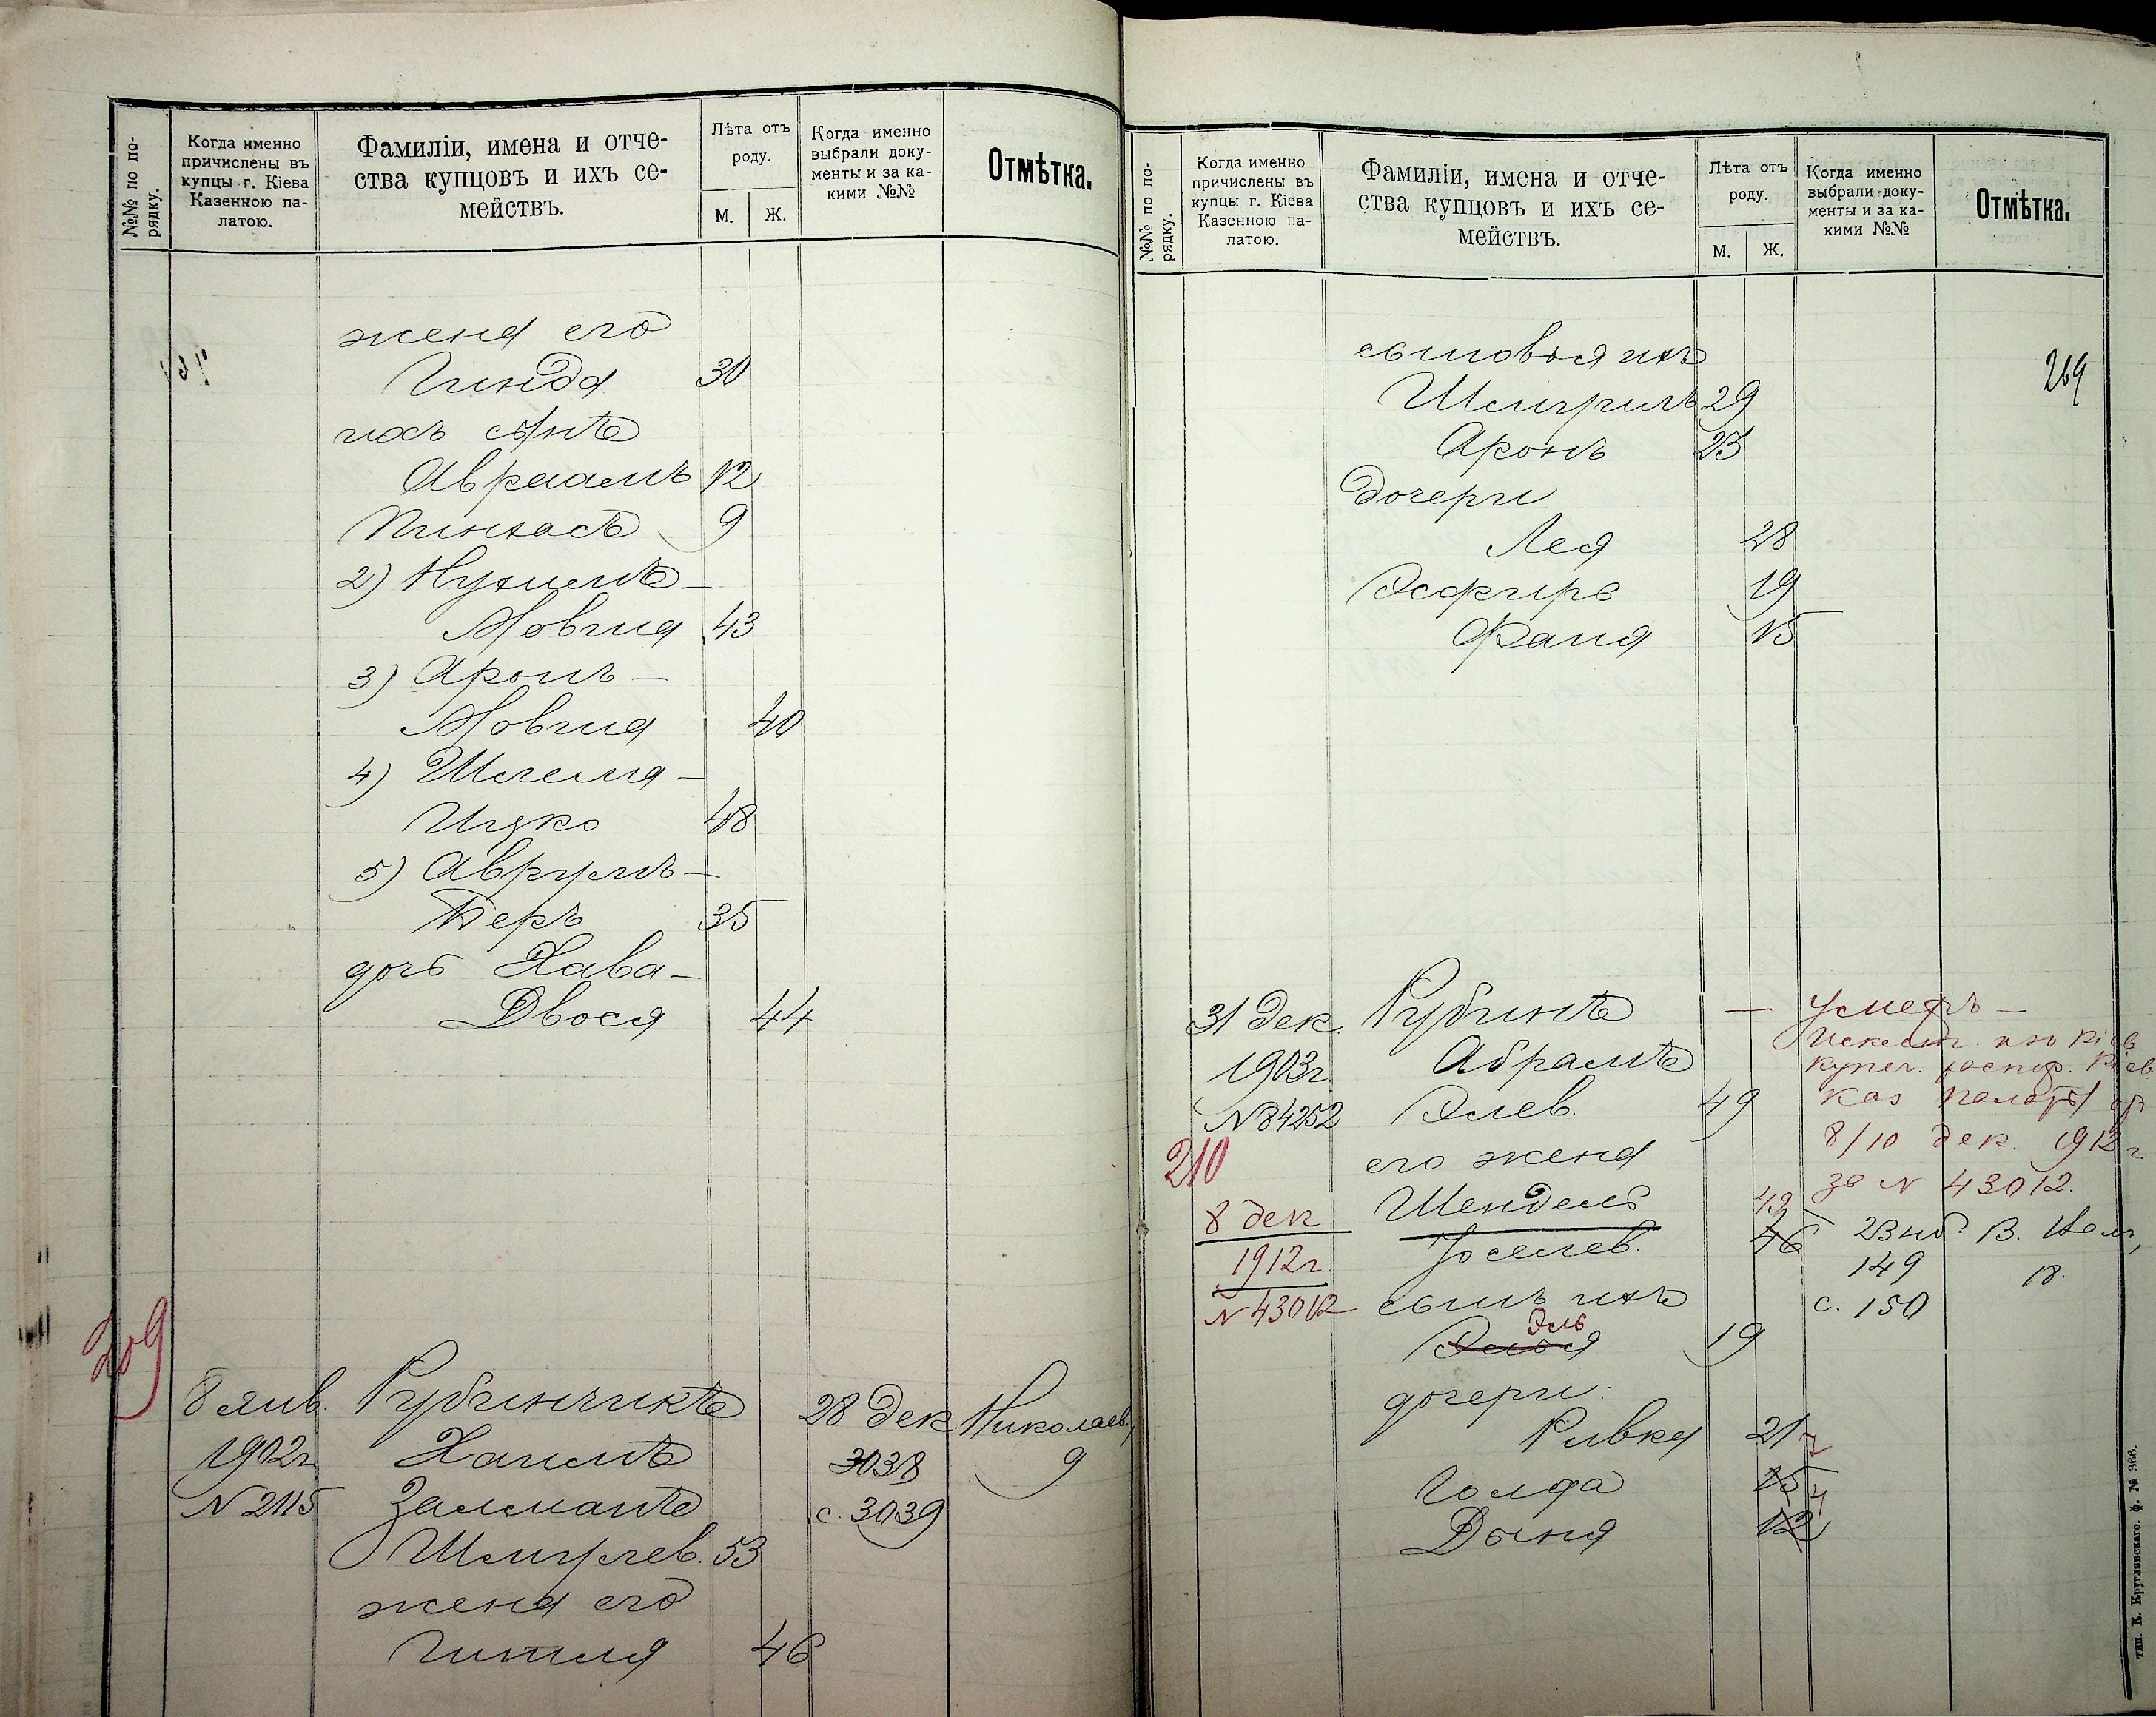 №№ по по-
рядку.
Когда именно
причислены въ
купцы г. Кіева
Казенною па-
латою.
Фамиліи, имена и отче-
ства купцовъ и ихъ се-
мействъ.
Лѣта отъ
роду.
М. Ж.
Когда именно
выбрали доку-
менты и за ка-
кими №№
Отмѣтка.
жена его
Гинда 30
ихъ сынъ
Авраамъ 12
Пинхасъ 9
2) Нухимъ-
Мовша 43
3) Аронъ-
Мовша 40
4) Шлема-
Ицко 48
5) Аврумъ-
Беръ 35
дочь Хава-
Двося 44
209
8 янв. Рубинчикъ 28 дек Николаев.
1902г Хаимъ 3038 9
N 2115 Залманъ с. 3039
Шмулев. 53
жена его
Гитля 46
№№ по по-
рядку.
Когда именно
причислены въ
купцы г. Кіева
Казенною па-
латою.
Фамиліи, имена и отче-
ства купцовъ и ихъ се-
мействъ.
Лѣта отъ
роду.
М. Ж.
Когда именно
выбрали доку-
менты и за ка-
кими №№
Отмѣтка.
269
сыновья ихъ
Шмуиль 29
Аронъ 23
дочери
Лея 28
Эсфирь 19
Фаня 15
31 дек Рубинъ — Умеръ —
1903г Абрамъ
N 84252 Элев. 49
Исключ. изъ Кіев
купеч. распор. Кіев
каз палаты от
8/10 дек. 1912 г.
за N 43012.
210 его жена
8 дек Шендель 49
1912г Іоселев. 46
N 43012 сынъ ихъ
23 нб. В. Вас.,
149 18.
с. 150
Эль
Элья 19
дочери:
Ривка 21
Голда 15
Дыня 12
тип. К. Круглянскаго. ф. № 366.